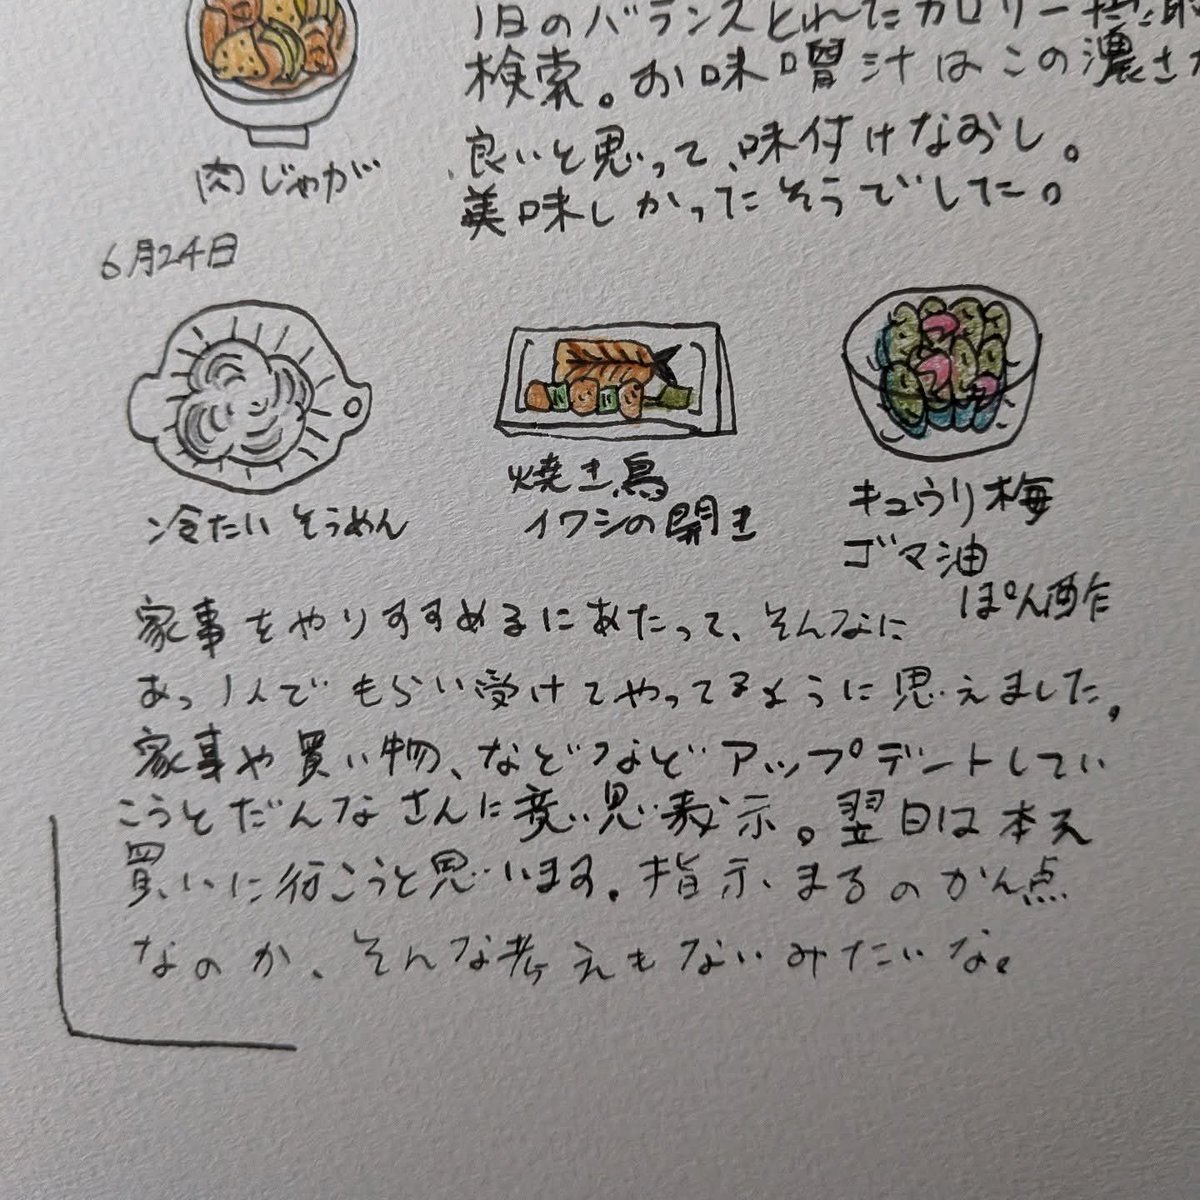 1日のバランスとれたカロリー
検索。お味噌汁はこの濃さ
良いと思って、味付けなおし。
美味しかったそうでした。
肉じゃが
6月24日
冷たいそうめん
焼き鳥
イワシの開き
キュウリ梅
ゴマ油
ぽん酢
家事をやりすすめるにあたって、そんなに
あっ でもらい受けてやってるように思えました。
家事や買い物、などなどアップデートしてい
こうとだんなさんに意思表示。翌日は本
買いに行こうと思います。指示まるのかん点
なのか、そんな考えもないみたいな。